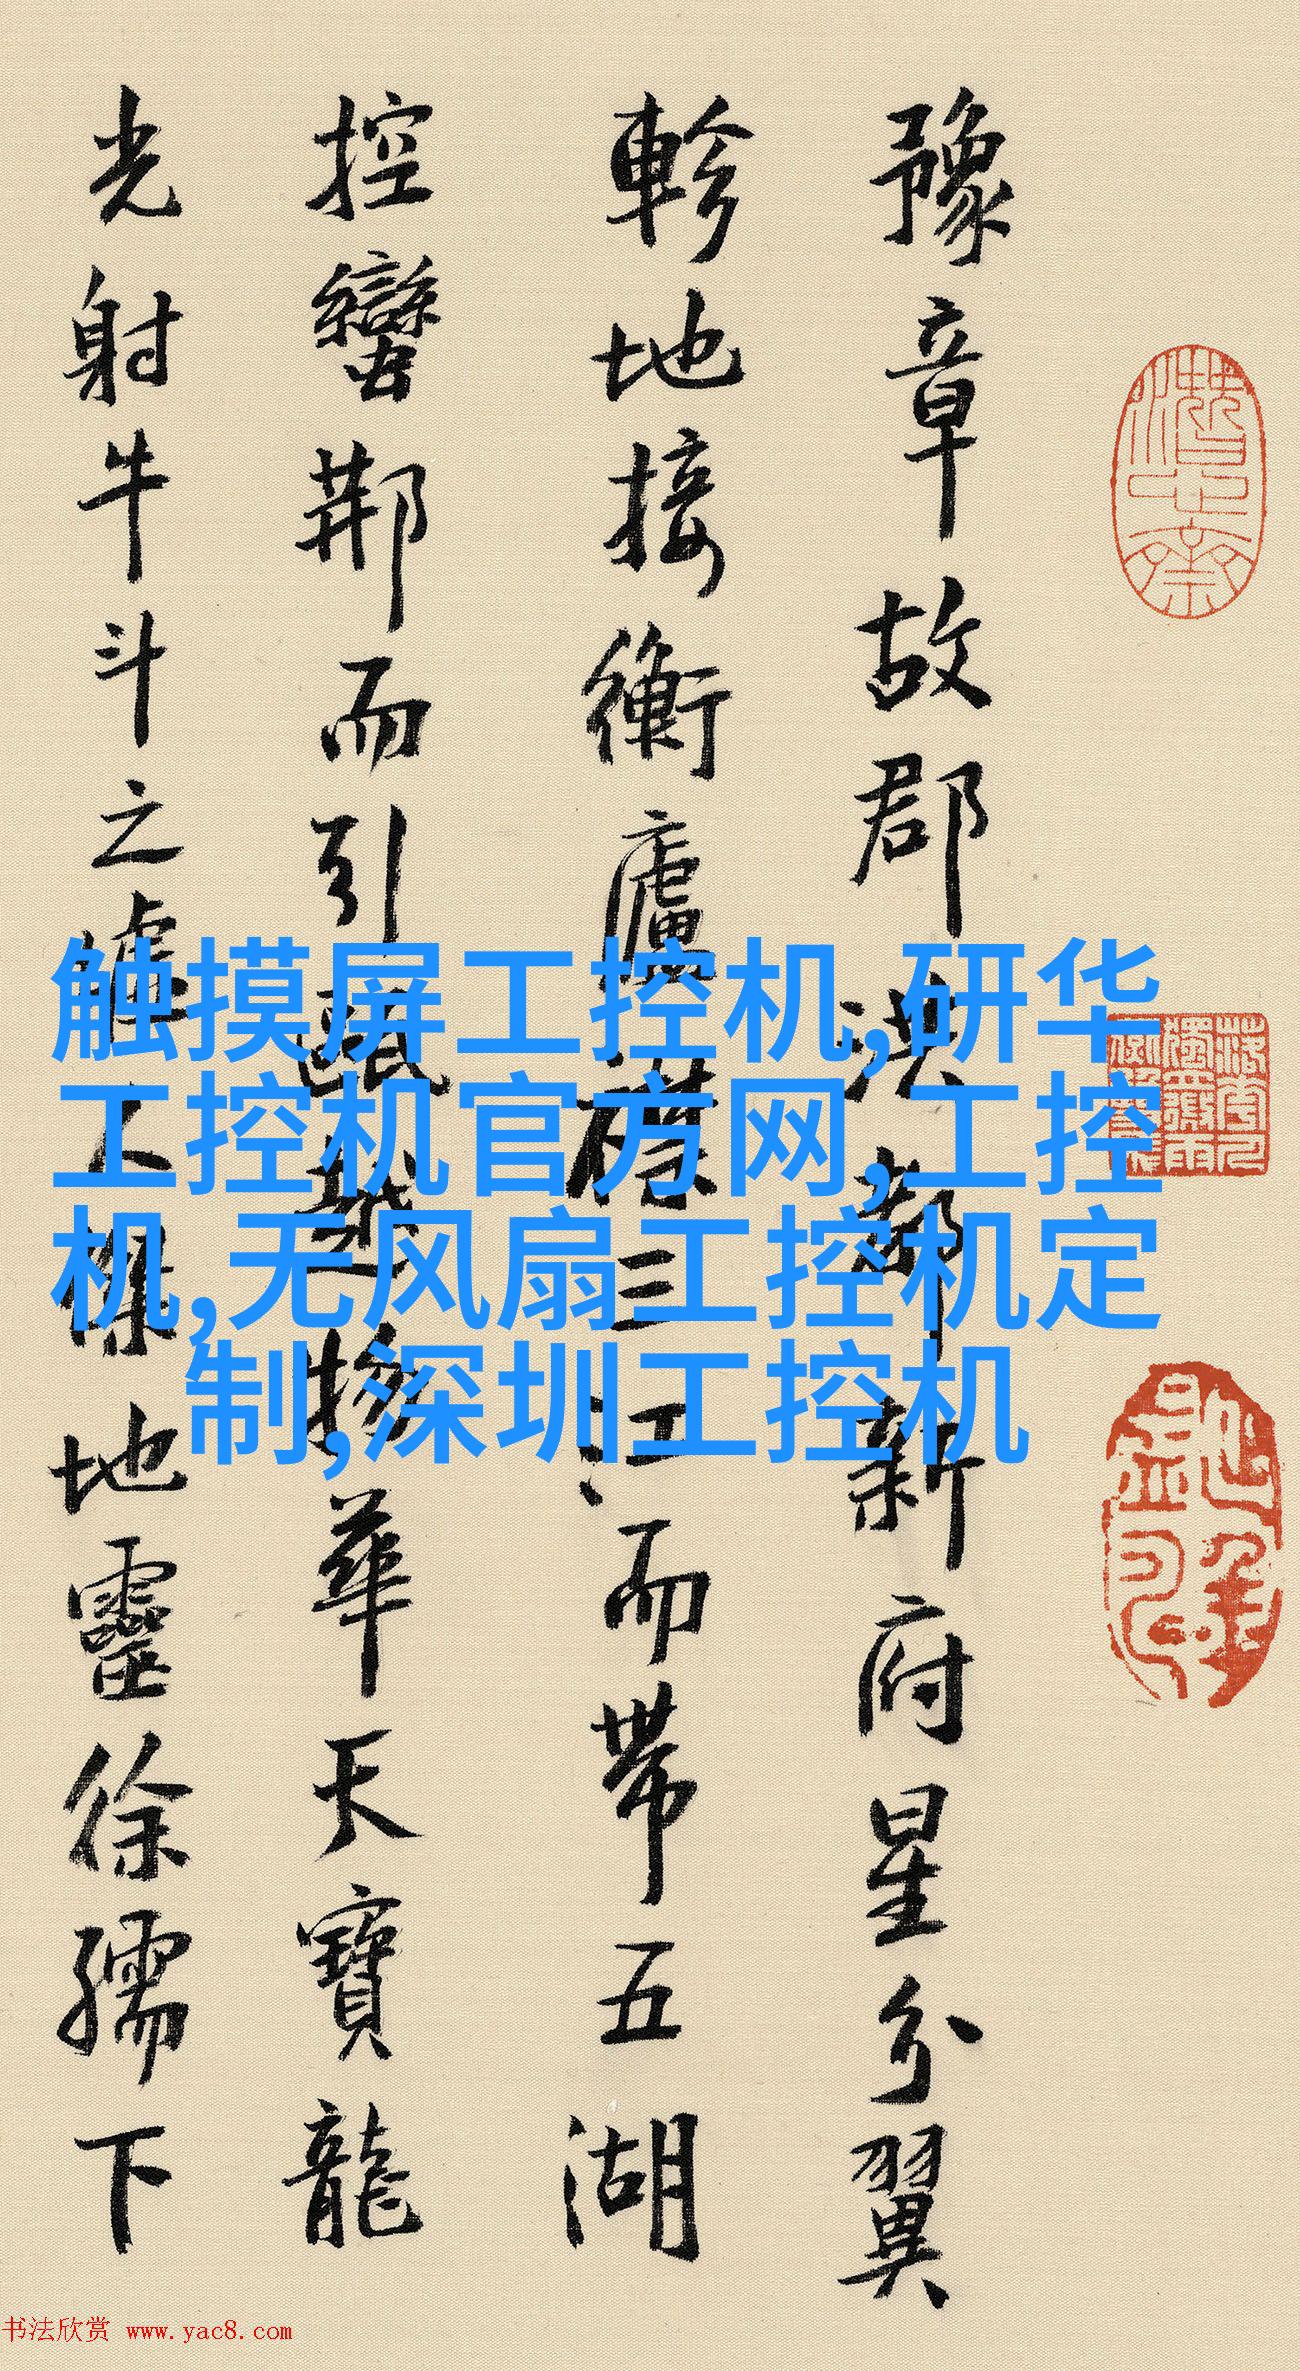 豫章故郡洪都新府星分翼
軫地接衡廬襟三江而帶五湖
控蠻荆而引甌越物華天寶龍
光射牛斗之墟人傑地靈徐孺下
触摸屏工控机,研华
工控机官方网,工控
机,无风扇工控机定
制,深圳工控机
书法欣赏 www.yac8.com